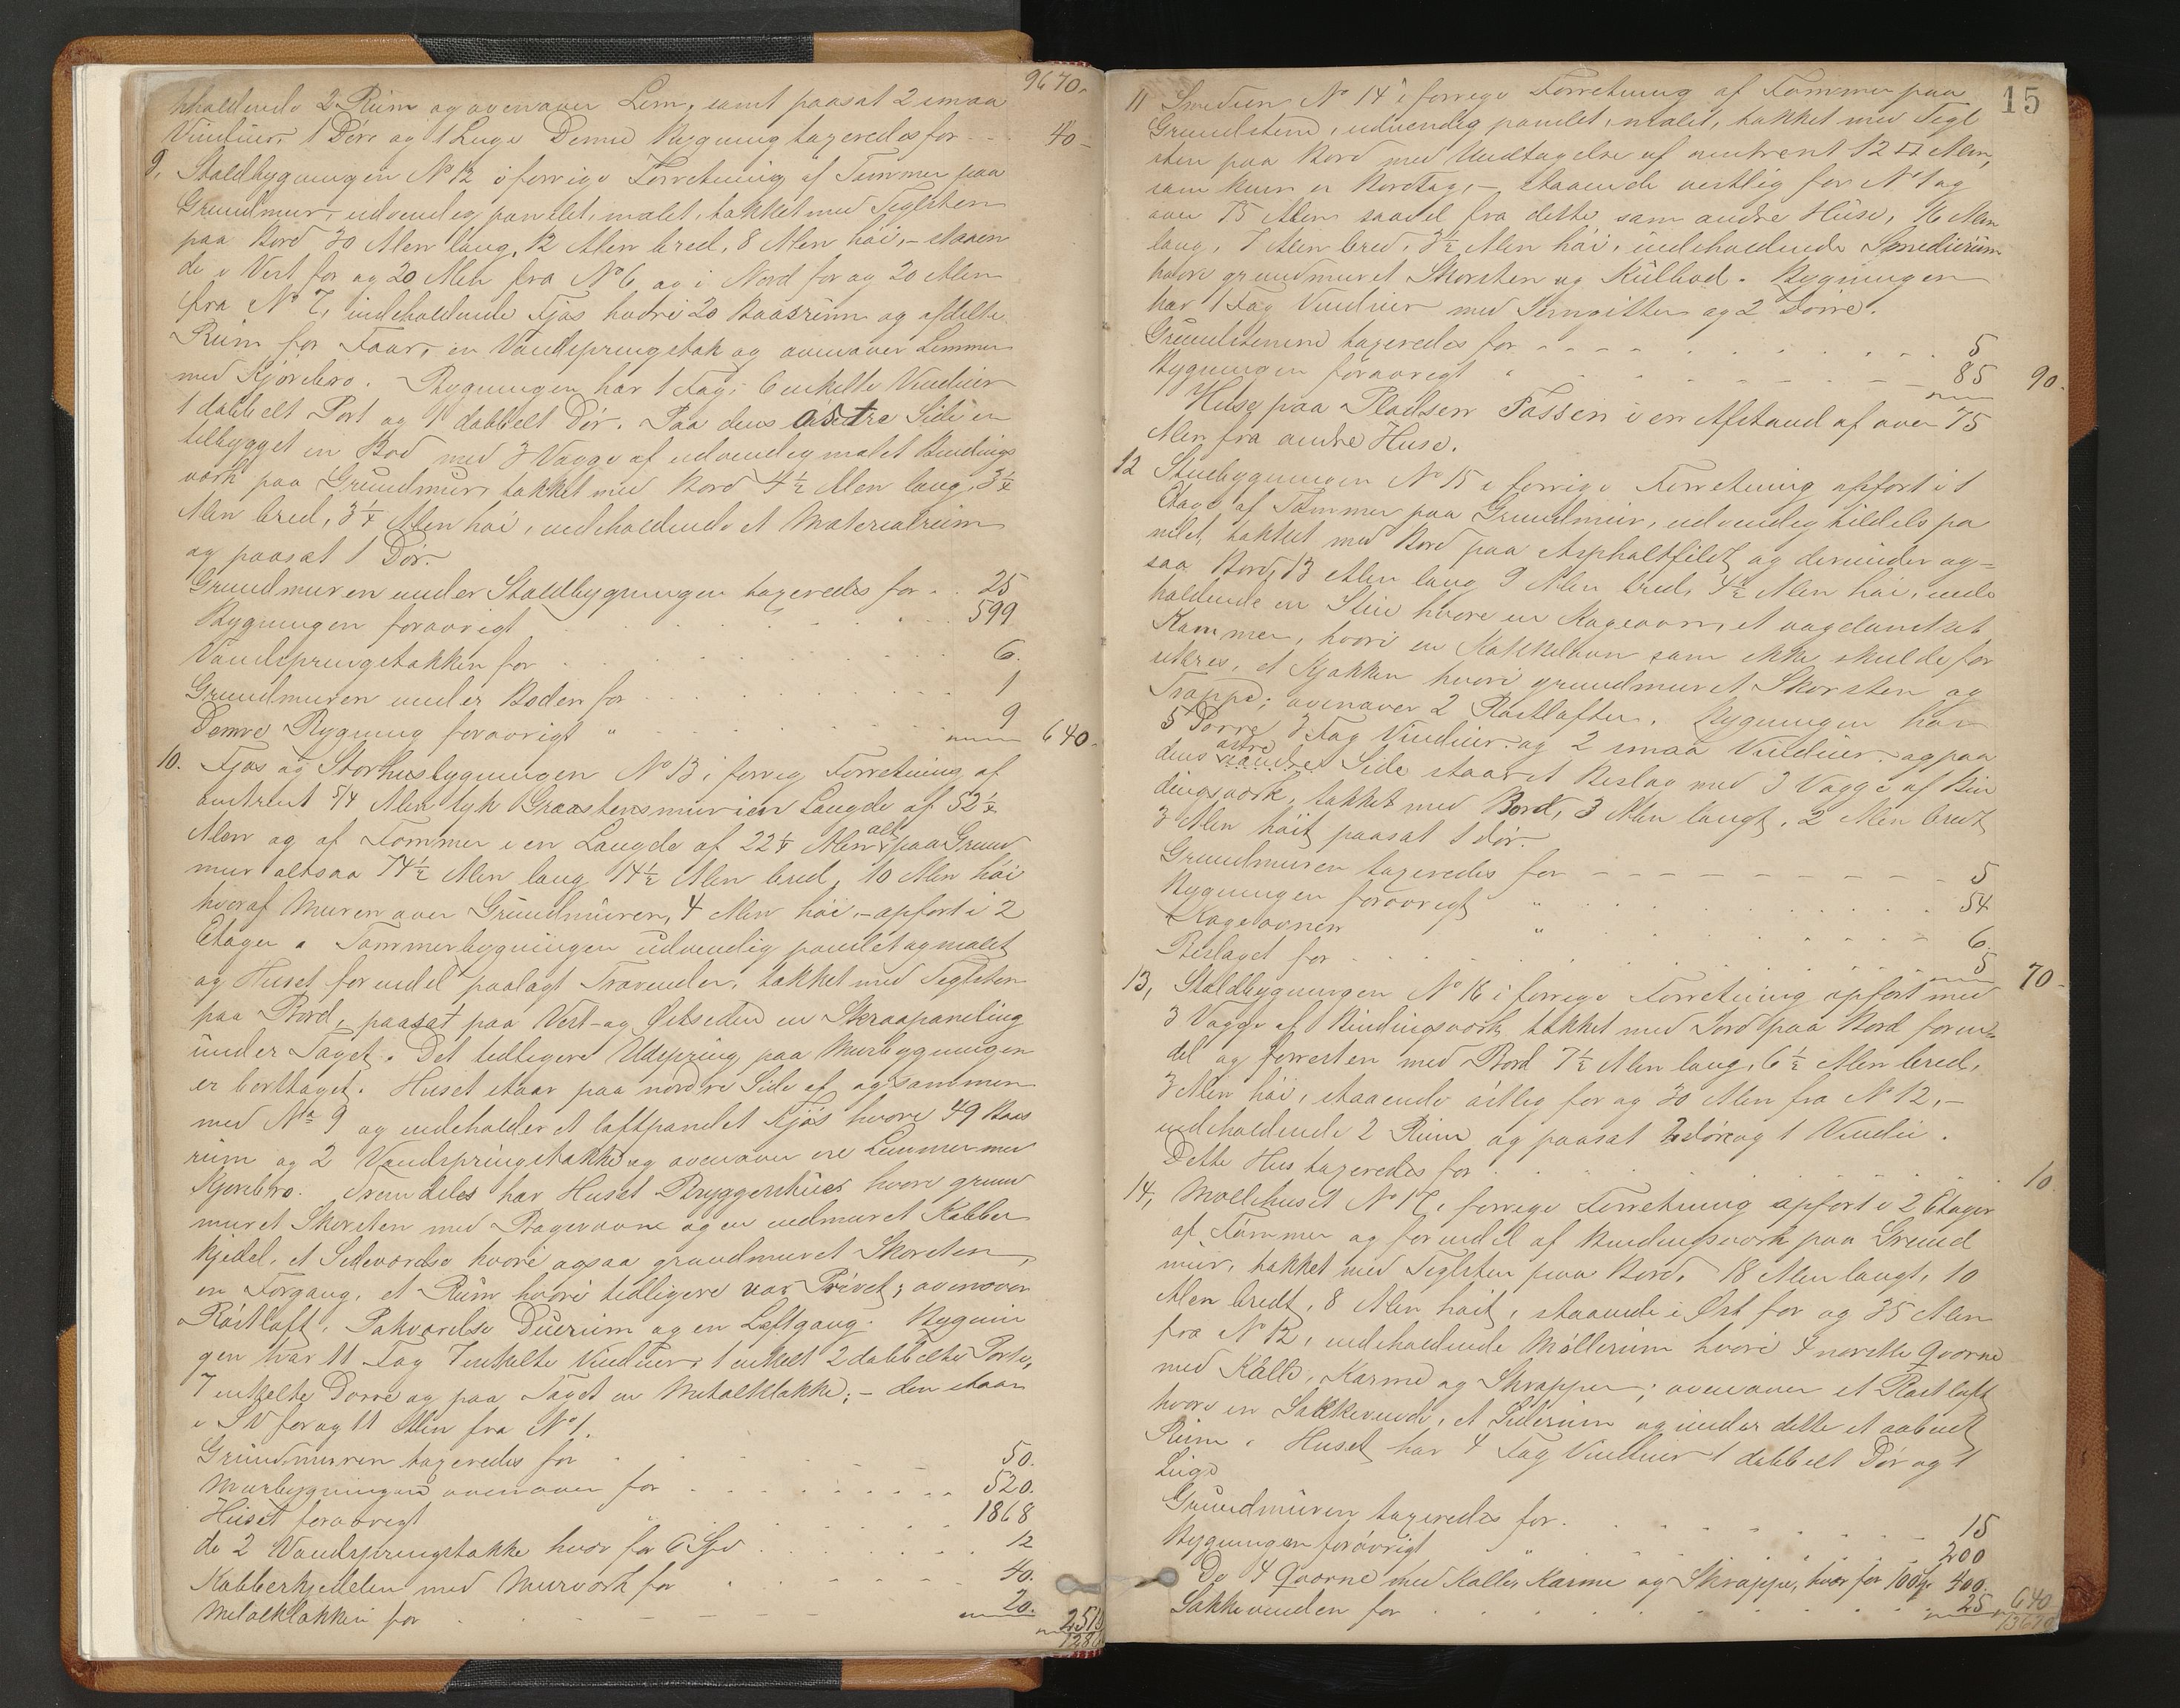 9670.
holdende 2 Rum og ovenover Lem, samt paasat 2 smaa
Vinduer, 1 Dør og 1 Luge Denne Bygning taxeredes for 40
9, Staldbygningen No 12 i forrige Forretning af Tømmer paa
Grundmur, udvendig panelet, malet, takket med Teglsten
paa Bord 30 Alen lang, 12 Alen bred, 8 Alen høi, - staaen
de i Vest for og 20 Alen fra No 6 og i Nord for og 20 Alen
fra No 7, indeholdende Fjøs hvori 20 Baasrum og afdelte
Rum for Faar, en Vandspringstok og ovenover Lemmer
med Kjørebro. Bygningen har 1 Fag, 6 enkelte Vinduer
1 dobbelt Port og 1 dobbelt Dør. Paa dens østre Side er
tilbygget en Bod med 3 Vægge af udvendig malet Bindings
værk paa Grundmur, takket med Bord 4 1/2 Alen lang, 3 1/4
Alen bred, 3 1/4 Alen høi, indeholdende et Materialrum
og paasat 1 Dør.
Grundmuren under Staldbygningen taxeredes for . . 25
Bygningen forøvrigt 599
Vandspringstokken for 6.
Grundmuren under Boden for 1
Denne Bygning forøvrigt " 9 640.
10. Fjøs og Storhusbygningen No 13 i forrig Forretning af
omtrent 5/4 Alen tyk Graastensmur i en Længde af 52 1/4
Alen og af Tømmer i en Længde af 22 1/4 Alen alt paa Grund
mur altsaa 74 1/2 Alen lang 14 1/2 Alen bred, 10 Alen høi
hvoraf Muren over Grundmuren, 4 Alen høi, - opført i 2
Etager. Tømmerbygningen udvendig panelet og malet
og Huset forendel paalagt Travender, takket med Teglsten
paa Bord, paasat paa Vest- og Østsiden en Skraapaneling
under Taget. Det tidligere Udspring paa Murbygningen
er borttaget. Huset staar paa nordre Side af og sammen
med No 9 og indeholder et loftpanelet Fjøs hvori 49 Baas
rum og 2 Vandspringstokke og ovenover ere Lemmer med
Kjørebro. Fremdeles har Huset Bryggerhuus hvori grund
muret Skorsten med Bagerovne og en indmuret Kobber
kjedel, et Sideværelse hvori ogsaa grundmuret Skorsten,
en Forgang, et Rum hvori tidligere var Privet; ovenover
Røstloft, Pakværelse Duerum og en Loftgang. Bygnin
gen har 11 Fag 7 enkelte Vinduer, 1 enkelt 2 dobbelte Porte,
7 enkelte Dørre og paa Taget en Metalklokke; - den staar
i SV for og 11 Alen fra No 1.
Grundmuren taxeredes for 50.
Murbygningen ovenover for 520.
Huset forøvrigt 1868
de 2 Vandspringstokke hver for 6 Spd 12
Kobberkjedelen med Murværk for 40.
Metalklokken for 20. 2510
15
11 Smedien No 14 i forrige Forretning af Tømmer paa
Grundstene, udvendig panelet, malet, takket med Tegl
sten paa Bord med Undtagelse af omtrent 12 □ Alen,
som kun er Bordtag, - staaende vestlig for No 1 og
over 75 Alen saavel fra dette som andre Huse, 16 Alen
lang, 7 Alen bred, 3 1/2 Alen høi, indeholdende Smedierum
hvori grundmuret Skorsten og Kulbod. Bygningen
har 1 Fag Vinduer med Jerngitter og 2 Dørre.
Grundstenene taxeredes for 5
Bygningen forøvrigt " 85 90.
Huse paa Pladsen Fossen i en Afstand af over 75
Alen fra andre Huse.
12 Stuebygningen No 15 i forrige Forretning opført i 1
Etage af Tømmer paa Grundmur, udvendig tildels pa
nelet, takket med Bord paa Asphaltfilt og derunder og=
saa Bord, 13 Alen lang 9 Alen bred, 4 1/2 Alen høi, inde
holdende en Stue hvori en Kageovn, et vægdandset
Kammer, hvori en Kakkelovn som ikke skulde for
sikres, et Kjøkken hvori grundmuret Skorsten og
Trappe; ovenover 2 Røstlofter. Bygningen har
5 Dørre 3 Fag Vinduer og 2 smaa Vinduer og paa
dens østre Side staar et Beslag med 3 Vægge af Bin
dingsværk, takket med Bord, 3 Alen langt, 2 Alen bredt
3 Alen høit paasat 1 dør.
Grundmuren taxeredes for 5
Bygningen forøvrigt " 54
Kageovnen " 6.
Beslaget for 5 70
13, Staldbygningen No 16 i forrige Forretning opført med
3 Vægge af Bindingsværk takket med Jord paa Bord foren=
del og forresten med Bord 7 1/2 Alen lang, 6 1/2 Alen bred,
3 Alen høi, staaende østlig for og 30 Alen fra No 12, -
indeholdende 2 Rum og paasat 2 døre og 1 Vindu.
Dette Hus taxeredes for 10
14, Møllehuset No 17 i forrige Forretning opført i 2 Etager
af Tømmer og forendel af Bindingsværk paa Grund
mur, takket med Teglsten paa Bord, 18 Alen langt, 10
Alen bredt, 8 Alen høit, staaende i Øst for og 35 Alen
fra No 12, indeholdende Møllerum hvori 4 norske Qværne
med Kalle, Karme og Skrapper; ovenover et Røstloft
hvori en Sækkevinde, et Siderum og under dette et aabent
Rum. Huset har 4 Fag Vinduer 1 dobbelt Dør og 1
Luge
Grundmuren taxeredes for 15
Bygningen forøvrigt " 200
De 4 Qværne med Kalle, Karme og Skrappe, hver for 100 400.
Sækkevinden for 25 640
13670